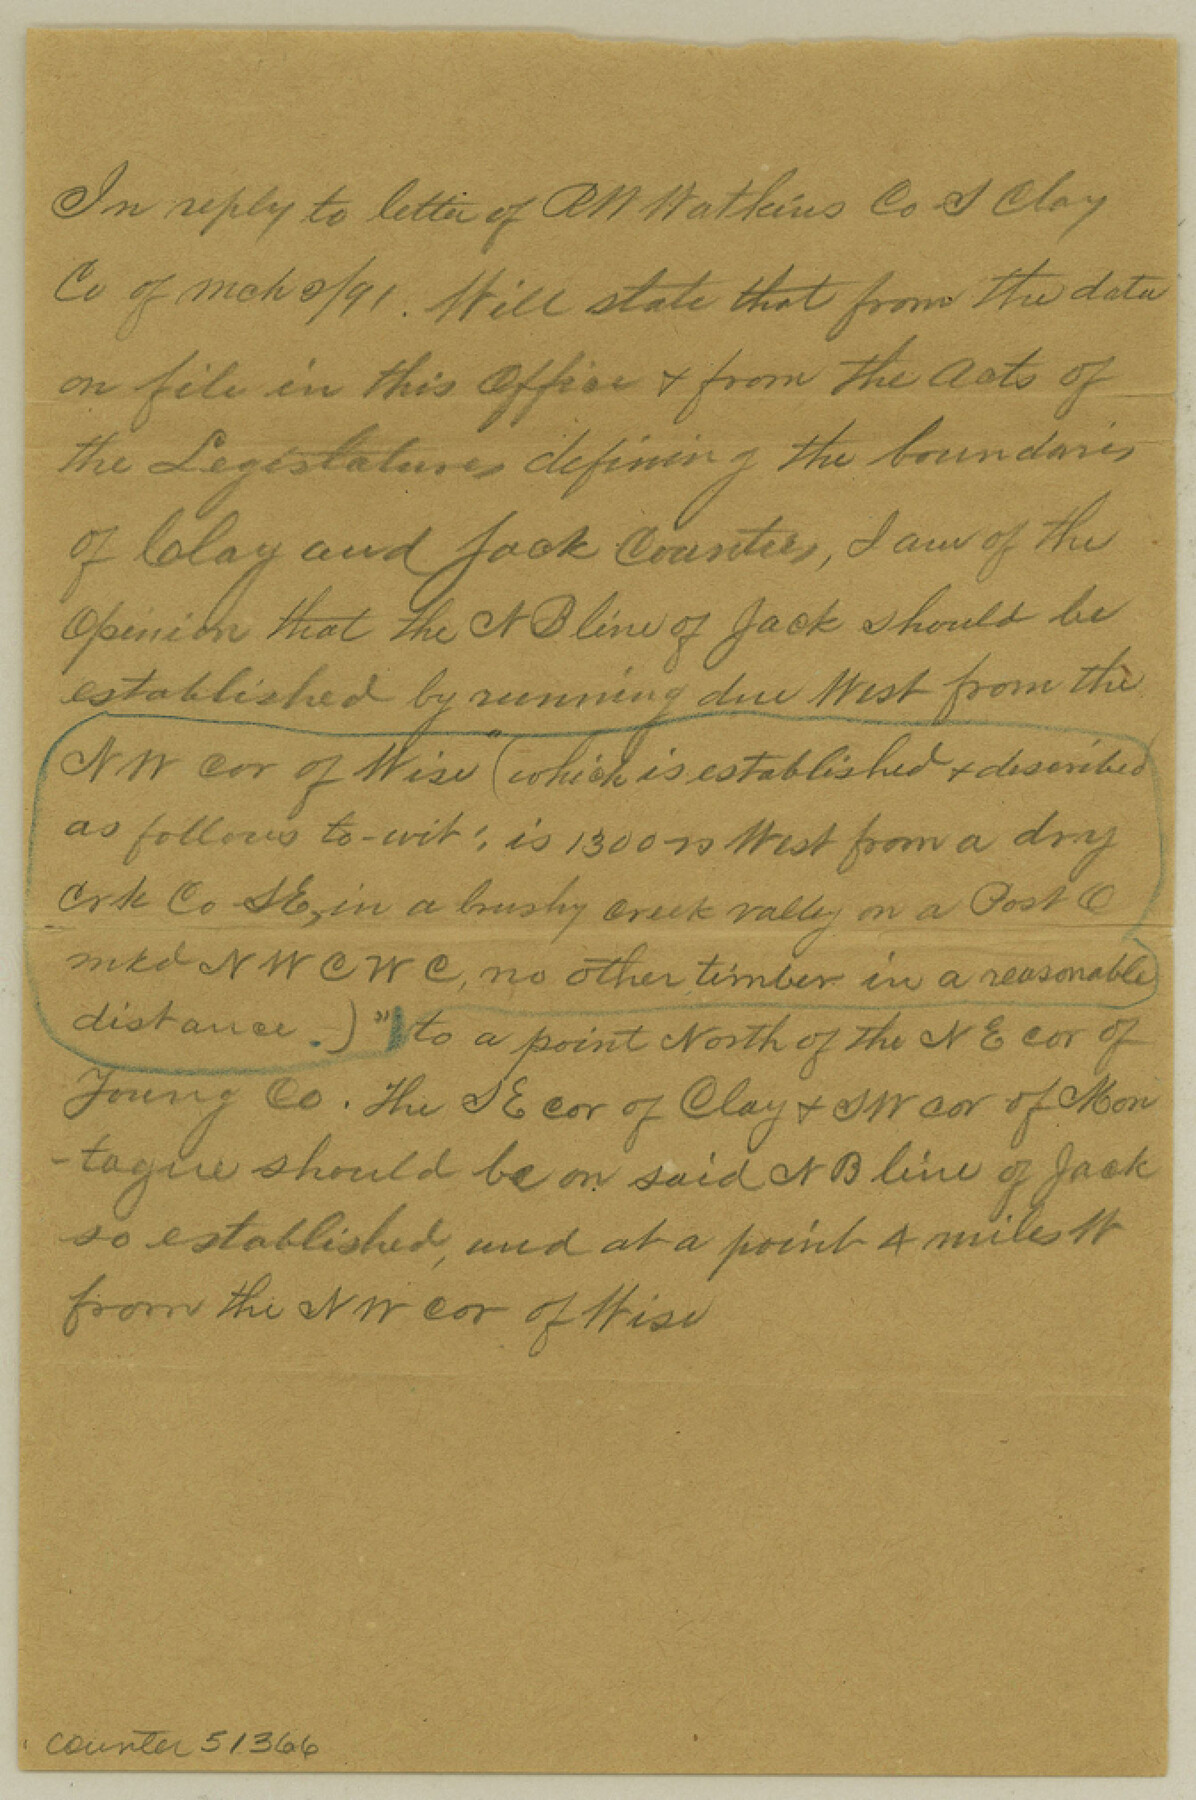 In reply to letter of RW Watkins Co S Clay
Co of mch 9/91. Will state that from the data
on file in this Office & from the Acts of
the Legislatures defining the boundaris
of Clay and Jack Counties, I am of the
Opinion that the N B line of Jack should be
established by running due West from the
N W cor of Wise "(which is established & described
as follows to-wit: is 1300 vs West from a dry
Crk Co S E, in a brushy creek valley on a Post O
mkd N W C W C, no other timber in a reasonable
distance.)" to a point North of the N E cor of
Young Co. The S E cor of Clay & S W cor of Mon
-tague should be on said N B line of Jack
so established, and at a point 4 miles W
from the N W cor of Wise
counter 51366